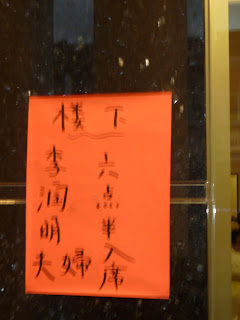 楼下
李润明夫婦
六点半入席